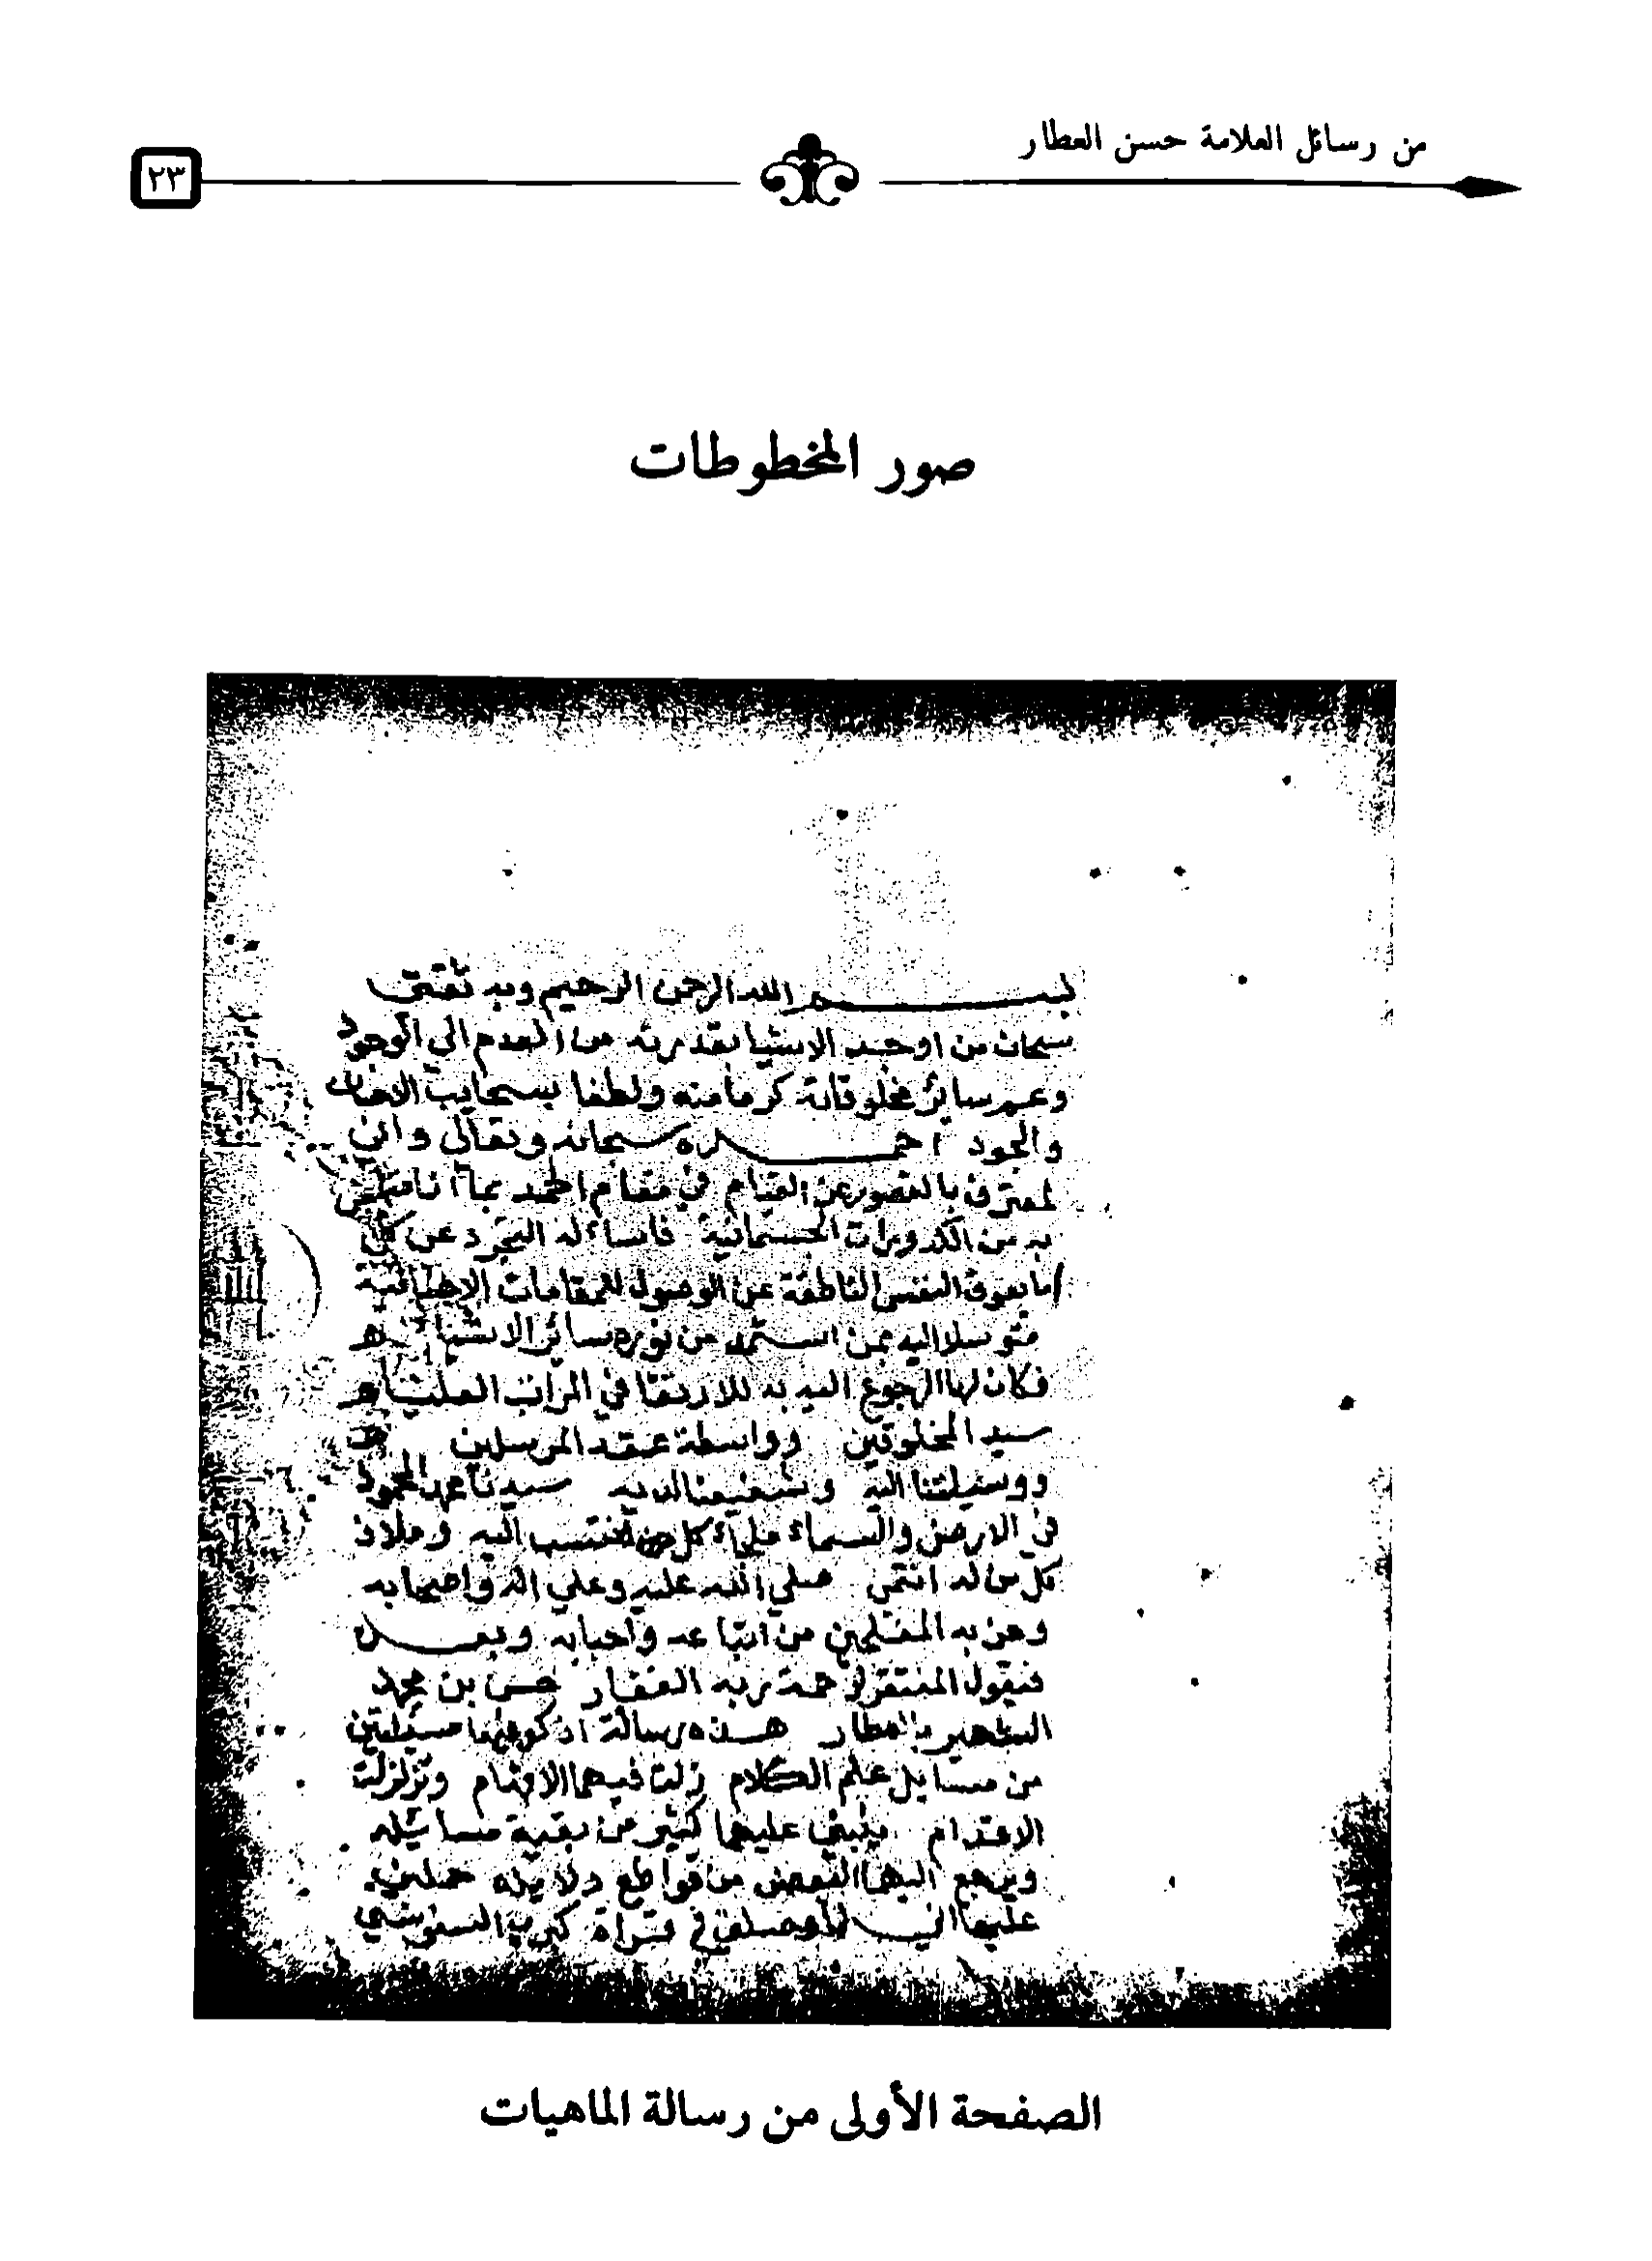 من رسائل العلامة حسن العطار
٢٣
صور المخطوطات
بسم الله الرحمن الرحيم وبه ثقتي
سبحان من اوجد الاشيا بقدرته من العدم الي الوجود
وعم سائر مخلوقاته كرما منه ولطفا بسحايب الاحسان
والجود احمده سبحانه وتعالى واني
لمعترف بالقصور عن القيام في مقام الحمد بما انا متلبس
به من الكدورات الجسمانية فاساله التجرد عن كل
ما يعوق النفس الناطقة عن الوصول للمقامات الاحطائية
متوسلا اليه بمن استمد من نوره سائر الاشيا
فكان لها الرجوع اليه به للارتقا في المراتب العليا
سيد المخلوقين وواسطة عقد المرسلين
ووسيلتنا اليه وشفيعنا لديه سيدنا محمد المحمود
في الارض والسماء ملجاء كل من انتسب اليه وملاذ
كل من له انتمى صلي الله عليه وعلي اله واصحابه
وحزبه المفلحين من اتباعه واحبابه وبعد
فيقول المفتقر لرحمة ربه الغفار حسن بن محمد
الشهير بالعطار هذه رسالة اذكر فيها مسئلتين
من مسايل علم الكلام زلت فيهما الافهام وتزلزلت
الاقدام ينبني عليهما كثير من بقية مسايله
ويرجع اليهما البعض من قواطع دلايله حملني
عليها اني لما وصلت في قراة كبري السنوسي
الصفحة الأولى من رسالة الماهيات